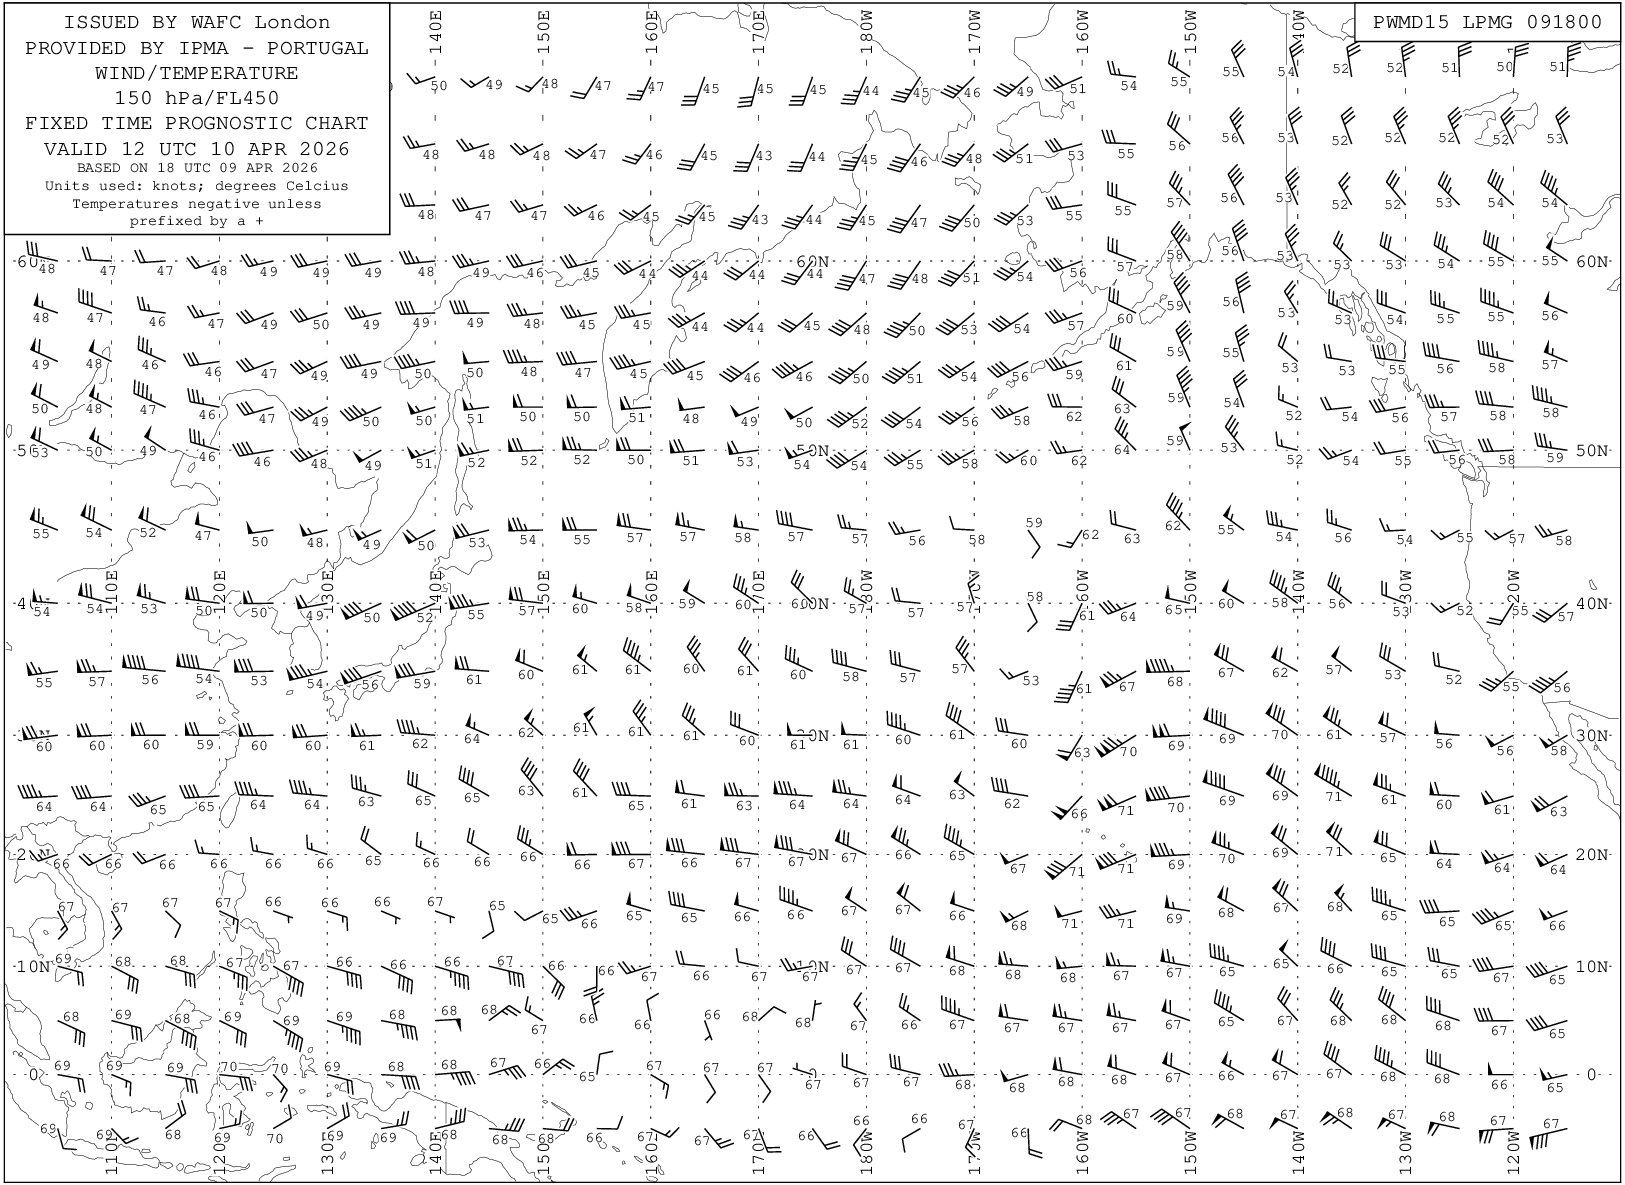 ISSUED BY WAFC London
PROVIDED BY IPMA - PORTUGAL
WIND/TEMPERATURE
150 hPa/FL450
FIXED TIME PROGNOSTIC CHART
VALID 12 UTC 10 APR 2026
BASED ON 18 UTC 09 APR 2026
Units used: knots; degrees Celcius
Temperatures negative unless
prefixed by a +
PWMD15 LPMG 091800
140E 150E 160E 170E 180W 170W 160W 150W 140W
50 49 48 47 47 45 45 45 44 45 46 49 51 54 55 55 54 52 52 51 50 51
48 48 48 47 46 45 43 44 45 46 48 51 53 55 56 56 53 52 52 52 52 53
48 47 47 46 45 45 43 44 45 47 50 53 55 55 57 56 53 52 52 53 54 54
60N 48 47 47 48 49 49 49 48 49 46 45 44 44 44 60N 44 47 48 51 54 56 57 58 56 53 53 53 54 55 55 60N
48 47 46 47 49 50 49 49 49 48 45 45 44 44 45 48 50 53 54 57 60 59 56 53 53 54 55 55 56
49 48 46 46 47 49 49 50 50 48 47 45 45 46 46 50 51 54 56 59 61 59 55 53 53 55 56 58 57
50 48 47 46 47 49 50 50 51 50 50 51 48 49 50 52 54 56 58 62 63 59 54 52 54 56 57 58 58
53 50 49 46 46 48 49 51 52 52 52 50 51 53 54 50N 54 55 58 60 62 64 59 53 52 54 55 56 58 59 50N
55 54 52 47 50 48 49 50 53 54 55 57 57 58 57 57 56 58 59 62 63 62 55 54 56 54 55 57 58
110E 120E 130E 140E 150E 160E 170E 180W 170W 160W 150W 140W 130W 120W
54 54 53 50 50 49 50 52 55 57 60 58 59 60 60 57 57 57 58 61 64 65 60 58 56 53 52 55 57 40N
55 57 56 54 53 54 56 59 61 60 61 61 60 61 60 58 57 57 53 61 67 68 67 62 57 53 52 55 56
60 60 60 59 60 60 61 62 64 62 61 61 61 60 61 61 60 61 60 63 70 69 69 70 61 57 56 56 58 30N
64 64 65 65 64 64 63 65 65 63 61 65 61 63 64 64 64 63 62 66 71 70 69 69 71 61 60 61 63
66 66 66 66 66 66 65 66 66 66 66 67 66 67 67 67 66 65 67 71 71 69 70 69 71 65 64 64 64 20N
67 67 67 67 66 67 66 67 65 65 66 65 65 66 66 67 67 66 68 71 71 69 68 67 68 65 65 65 66
10N 69 68 68 67 67 66 66 66 67 66 66 67 66 67 67 67 67 68 68 68 67 67 65 65 65 65 65 67 65 10N
68 69 68 69 69 69 68 68 68 67 66 66 66 68 68 67 66 67 67 67 67 67 65 67 68 68 68 67 65
0 69 69 69 70 70 69 68 68 67 66 65 67 67 67 67 67 67 68 68 68 68 67 66 67 67 68 68 66 65 0
69 69 68 69 70 69 69 68 68 68 66 67 67 67 66 66 66 67 66 68 67 67 68 67 68 67 68 67 67
110E 120E 130E 140E 150E 160E 170E 180W 170W 160W 150W 140W 130W 120W